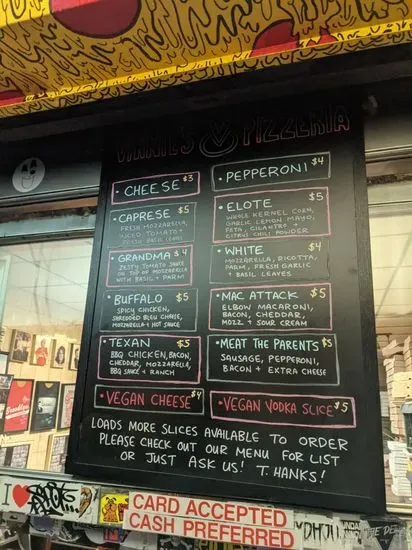 VINNIE'S PIZZERIA
• CHEESE $3
• CAPRESE $5
FRESH MOZZARELLA,
SLICED TOMATO +
FRESH BASIL LEAF
• GRANDMA $4
ZESTY TOMATO SAUCE
ON TOP OF MOZZARELLA
WITH BASIL + PARM
• BUFFALO $5
SPICY CHICKEN,
SHREDDED BLEU CHEESE,
MOZZARELLA + HOT SAUCE
• TEXAN $5
BBQ CHICKEN, BACON,
CHEDDAR, MOZZARELLA,
BBQ SAUCE + RANCH
• VEGAN CHEESE $4
• PEPPERONI $4
• ELOTE $5
WHOLE KERNEL CORN,
GARLIC LEMON MAYO,
FETA, CILANTRO +
CHILI POWDER
• WHITE $4
MOZZARELLA, RICOTTA,
PARM, FRESH GARLIC
+ BASIL LEAVES
• MAC ATTACK $5
ELBOW MACARONI,
BACON, CHEDDAR,
MOZZ + SOUR CREAM
• MEAT THE PARENTS $5
SAUSAGE, PEPPERONI,
BACON + EXTRA CHEESE
• VEGAN VODKA SLICE $5
LOADS MORE SLICES AVAILABLE TO ORDER
PLEASE CHECK OUT OUR MENU FOR LIST
OR JUST ASK US! T.HANKS!
CARD ACCEPTED
CASH PREFERRED
I
Brooklyn